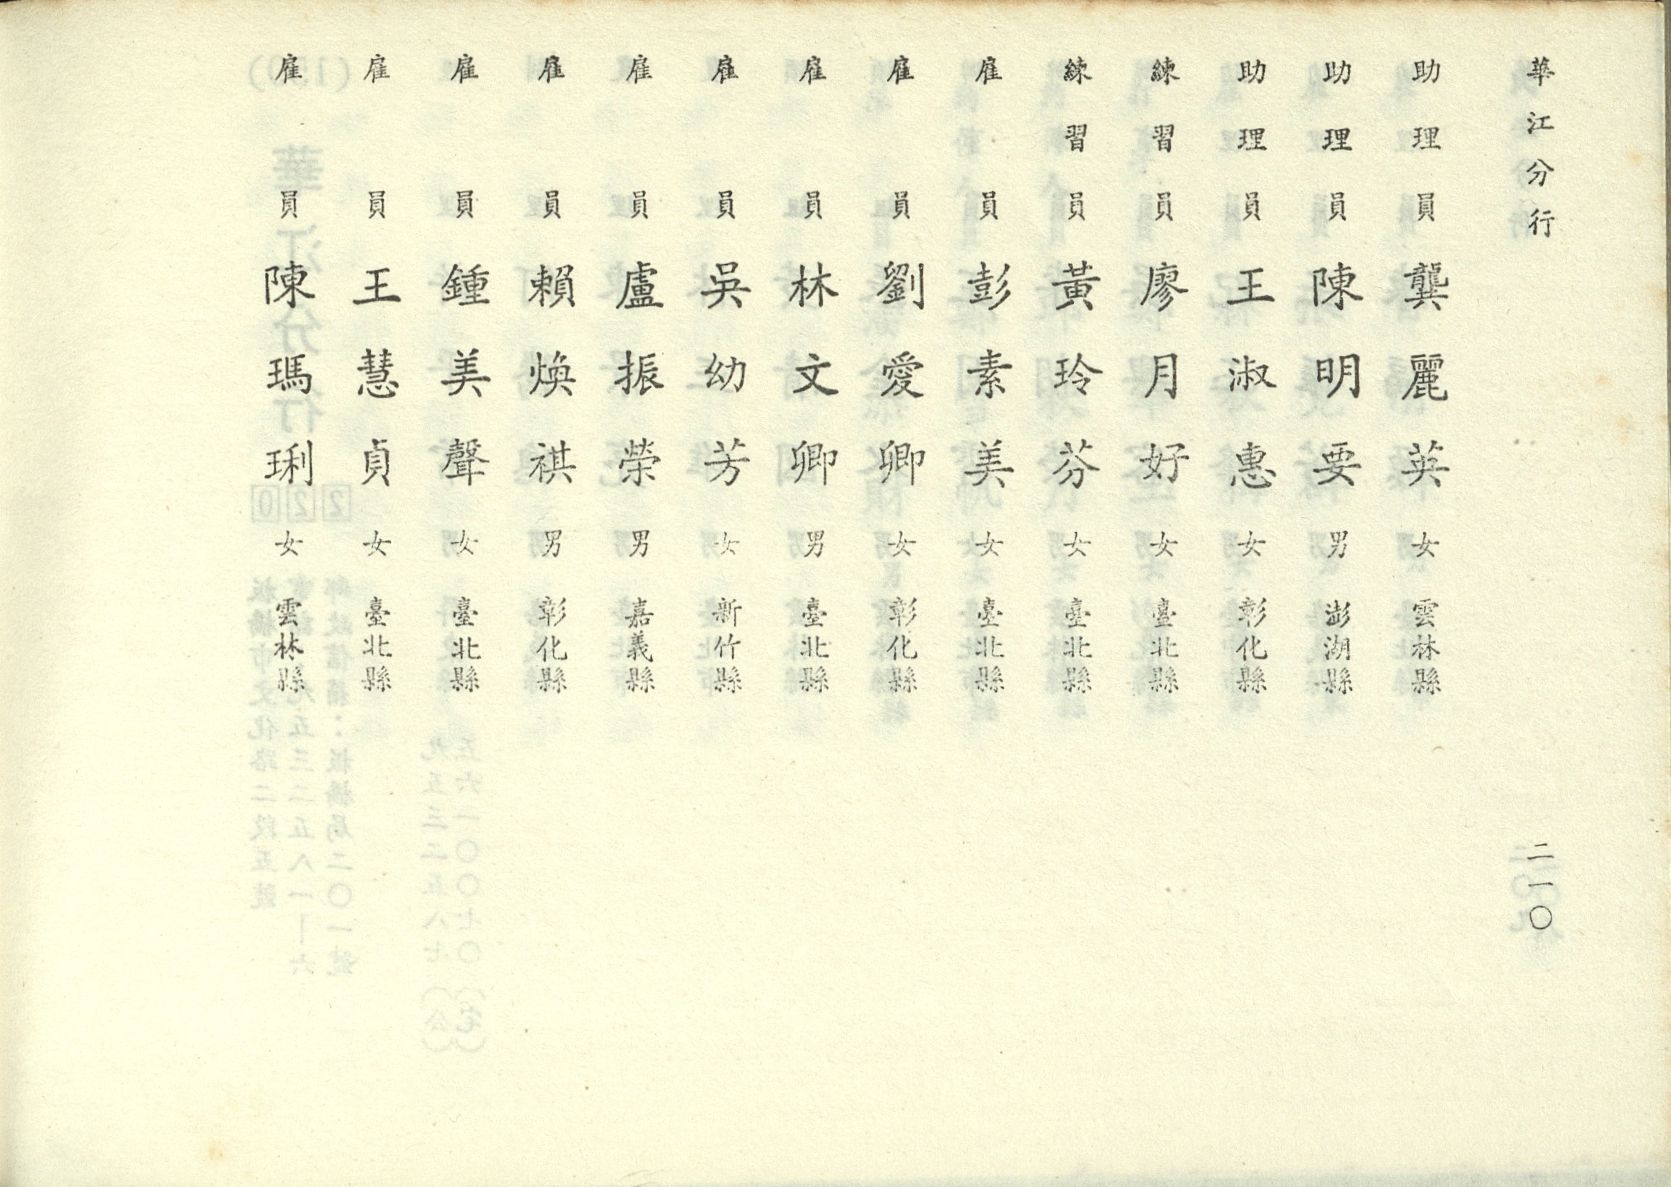 華江分行 二一〇
助理員 龔麗英 女 雲林縣
助理員 陳明要 男 澎湖縣
助理員 王淑惠 女 彰化縣
練習員 廖月好 女 臺北縣
練習員 黃玲芬 女 臺北縣
雇員 彭素美 女 臺北縣
雇員 劉愛卿 女 彰化縣
雇員 林文卿 男 臺北縣
雇員 吳幼芳 女 新竹縣
雇員 盧振榮 男 嘉義縣
雇員 賴煥祺 男 彰化縣
雇員 鍾美聲 女 臺北縣
雇員 王慧貞 女 臺北縣
雇員 陳瑪琍 女 雲林縣